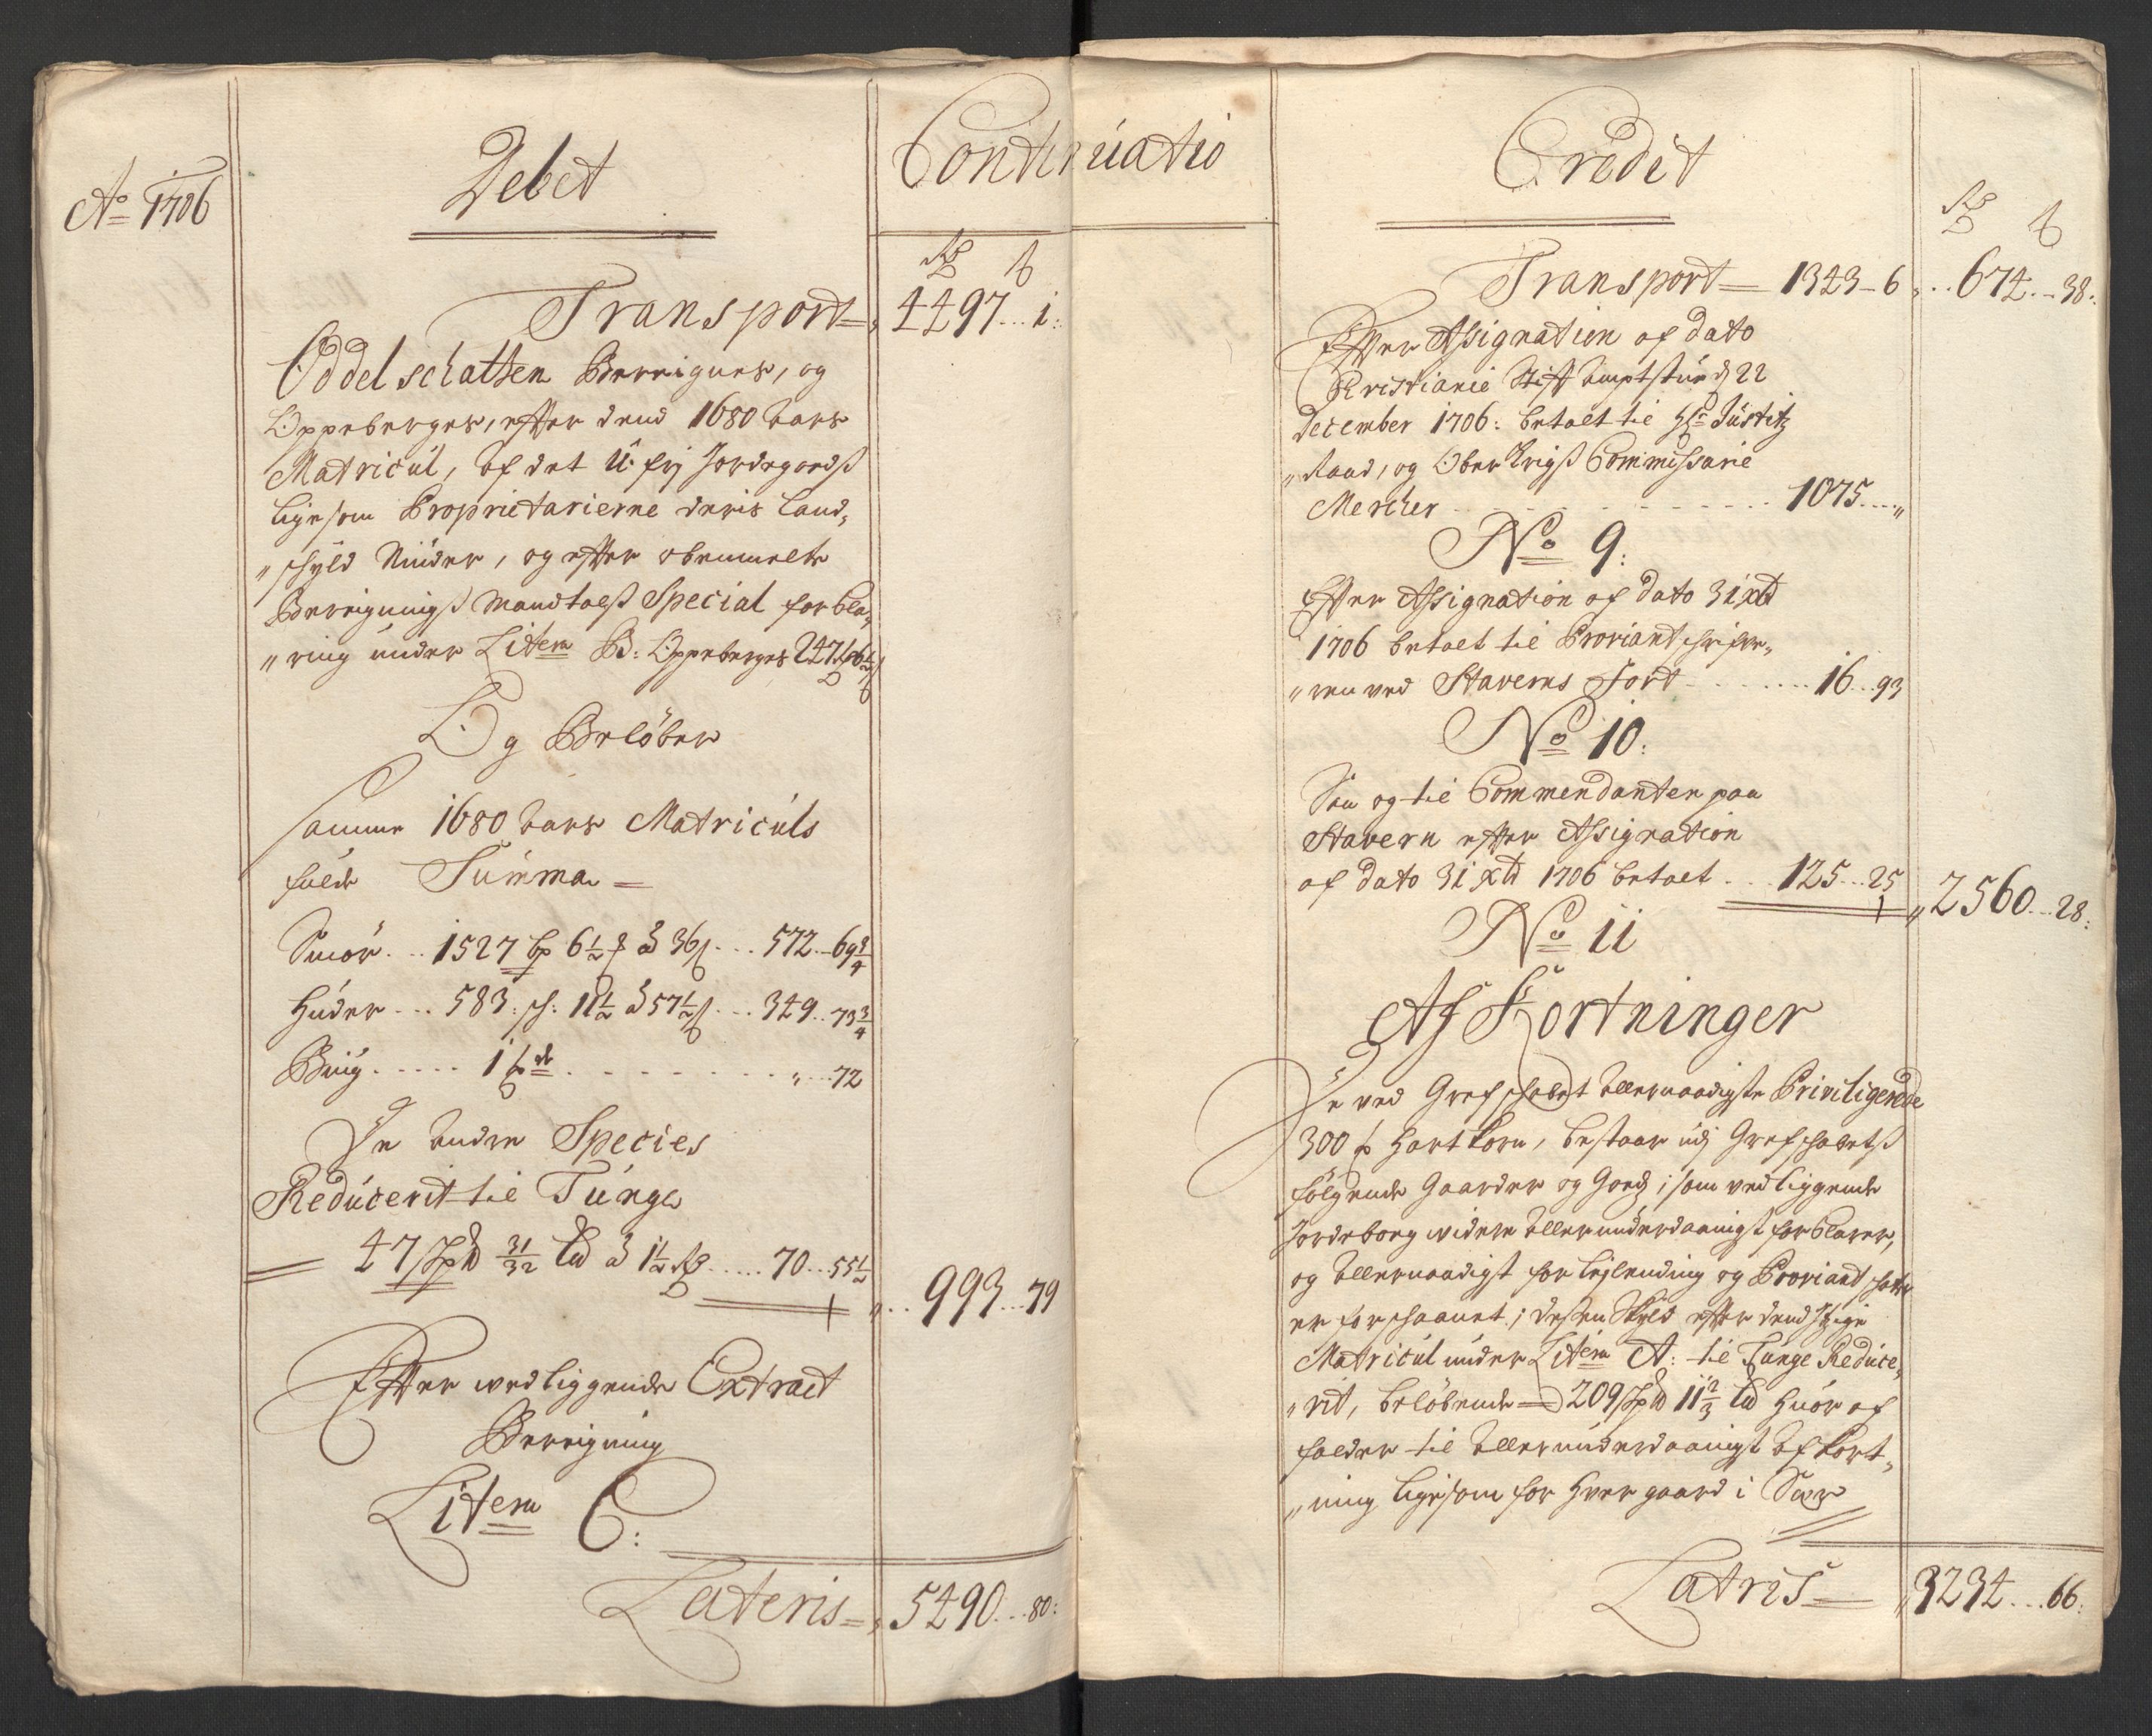 Ao 1706
Debet
Continuatio
Rdr ß
Transport = 4497 .. 1:
Oddelschatten Bereignes, og
Oppeberges, efter dend 1680 Aars
Matricul, Af det U: frj Jordegoedtz
ligesom Proprietarierne deris Land,
"schyld Nuder, og efter obenmelte
Bereignings Mandtals Special forkla,
"ring under Litera B: Oppeberges 247
Og Beløber
samme 1680 Aars Matriculs
fulde Summa =
Smør ... 1527 bp 6 1/2 à 36 ß ... 572 .. 69 3/4
Huder ... 583: sk: 11 1/2 à 57 1/2 ß ... 349 .. 73 3/4
Biug ..... 1 ........ " ... 72
De Andre Species
Reducerit til Tunge
47 Spd 31/32 Ld à 1 1/2 Rd ..... 70 ... 55 1/2
" .. 993 ... 79
Efter wedliggende Extract
Bereigning
Litera C:
Lateris = 5490 ... 80:
Credit
Rdr ß
Transport = 1343 - 6 " .. 674 .. 38:
Efter Assignation af dato
Kristianie Stift Amptstue d 22
December 1706: betalt til Hr Justitz
"Raad, og Ober Krigs Commissarie
Mercher ........ 1075 .... "
No 9:
Efter Assignation af dato 31 xbr
1706 betalt til Proviantschrifve,
"ren ved Staverns Fort ....... 16 .. 93
No 10:
Saa og til Commendanten paa
Stavern efter Assignation
af dato 31 xbr 1706 betalt ... 125 .. 25
" 2560 ... 28:
No 11
Af Kortninger
De ved Grefschabet Allernaadigste Priviligerede
300 t Hartkorn, bestaar udj Grefschabets
følgende Gaarder og Goedz, som vedliggende
Jordebog widere Allerunderdaanigst forklarer,
og Allernaadigst for leylending og Proviant schatt
er forschaanet, dessen Skyld efter dend
Matricul under Litera A: til Tunge Reduce,
"rit, beløbende = 209 Spd 11 2/3 Ld Huor af
falder til Allerunderdaanigst Afkort,
"ning ligesom for Hver gaard i Sær
Latris = 3234 ... 66: